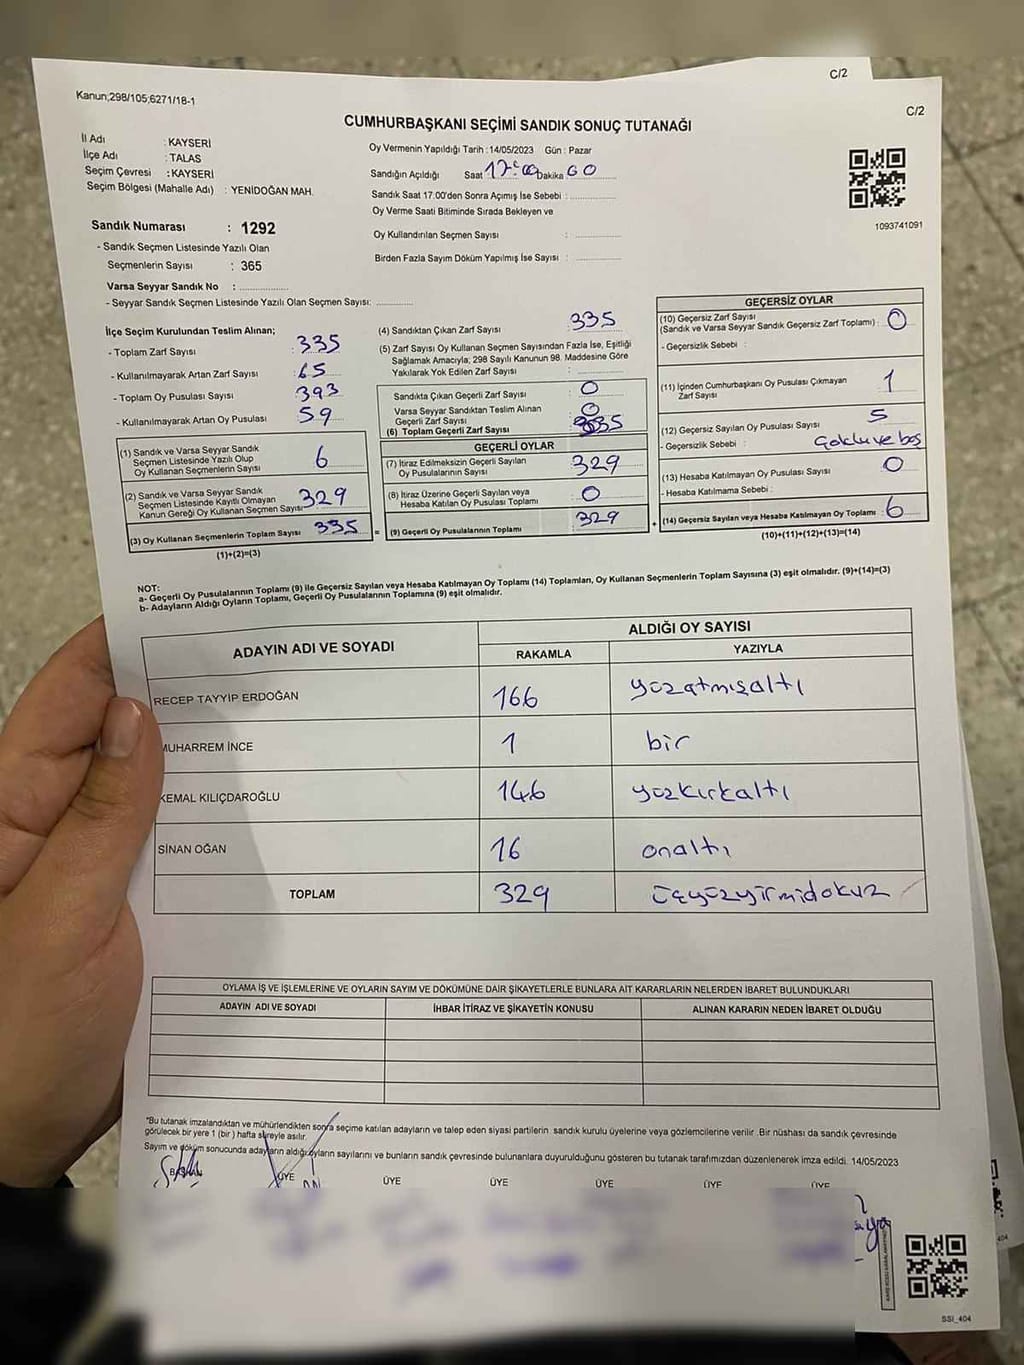 C/2
Kanun;298/105;6271/18-1
C/2
CUMHURBAŞKANI SEÇİMİ SANDIK SONUÇ TUTANAĞI
İl Adı : KAYSERİ
İlçe Adı : TALAS
Seçim Çevresi : KAYSERİ
Seçim Bölgesi (Mahalle Adı) : YENİDOĞAN MAH.
Oy Vermenin Yapıldığı Tarih : 14/05/2023 Gün : Pazar
Sandığın Açıldığı Saat 17:00 Dakika
Sandık Saat 17.00'den Sonra Açımış İse Sebebi :
Oy Verme Saati Bitiminde Sırada Bekleyen ve
Oy Kullandırılan Seçmen Sayısı :
Birden Fazla Sayım Döküm Yapılmış İse Sayısı :
1093741091
Sandık Numarası : 1292
- Sandık Seçmen Listesinde Yazılı Olan
Seçmenlerin Sayısı : 365
Varsa Seyyar Sandık No :
- Seyyar Sandık Seçmen Listesinde Yazılı Olan Seçmen Sayısı:
İlçe Seçim Kurulundan Teslim Alınan;
- Toplam Zarf Sayısı : 335
- Kullanılmayarak Artan Zarf Sayısı : 65
- Toplam Oy Pusulası Sayısı : 393
- Kullanılmayarak Artan Oy Pusulası : 59
(1) Sandık ve Varsa Seyyar Sandık
Seçmen Listesinde Yazılı Olup
Oy Kullanan Seçmenlerin Sayısı 6
(2) Sandık ve Varsa Seyyar Sandık
Seçmen Listesinde Kayıtlı Olmayan
Kanun Gereği Oy Kullanan Seçmen Sayısı 329
(3) Oy Kullanan Seçmenlerin Toplam Sayısı 335
(1)+(2)=(3)
(4) Sandıktan Çıkan Zarf Sayısı : 335
(5) Zarf Sayısı Oy Kullanan Seçmen Sayısından Fazla İse, Eşitliği
Sağlamak Amacıyla; 298 Sayılı Kanunun 98. Maddesine Göre
Yakılarak Yok Edilen Zarf Sayısı :
Sandıkta Çıkan Geçerli Zarf Sayısı : 0
Varsa Seyyar Sandıktan Teslim Alınan
Geçerli Zarf Sayısı : 0
(6) Toplam Geçerli Zarf Sayısı : 335
GEÇERLİ OYLAR
(7) İtiraz Edilmeksizin Geçerli Sayılan
Oy Pusulalarının Sayısı : 329
(8) İtiraz Üzerine Geçerli Sayılan veya
Hesaba Katılan Oy Pusulası Toplamı : 0
= (9) Geçerli Oy Pusulalarının Toplamı : 329 +
GEÇERSİZ OYLAR
(10) Geçersiz Zarf Sayısı
(Sandık ve Varsa Seyyar Sandık Geçersiz Zarf Toplamı) : 0
- Geçersizlik Sebebi :
(11) İçinden Cumhurbaşkanı Oy Pusulası Çıkmayan
Zarf Sayısı : 1
(12) Geçersiz Sayılan Oy Pusulası Sayısı : 5
- Geçersizlik Sebebi : Çoklu ve boş
(13) Hesaba Katılmayan Oy Pusulası Sayısı : 0
- Hesaba Katılmama Sebebi :
(14) Geçersiz Sayılan veya Hesaba Katılmayan Oy Toplamı : 6
(10)+(11)+(12)+(13)=(14)
NOT:
a- Geçerli Oy Pusulalarının Toplamı (9) ile Geçersiz Sayılan veya Hesaba Katılmayan Oy Toplamı (14) Toplamları, Oy Kullanan Seçmenlerin Toplam Sayısına (3) eşit olmalıdır. (9)+(14)=(3)
b- Adayların Aldığı Oyların Toplamı, Geçerli Oy Pusulalarının Toplamına (9) eşit olmalıdır.
ADAYIN ADI VE SOYADI
ALDIĞI OY SAYISI
RAKAMLA YAZIYLA
RECEP TAYYİP ERDOĞAN 166 yüzatmışaltı
MUHARREM İNCE 1 bir
KEMAL KILIÇDAROĞLU 146 yüzkırkaltı
SİNAN OĞAN 16 onaltı
TOPLAM 329 üçyüzyirmidokuz
OYLAMA İŞ VE İŞLEMLERİNE VE OYLARIN SAYIM VE DÖKÜMÜNE DAİR ŞİKAYETLERLE BUNLARA AİT KARARLARIN NELERDEN İBARET BULUNDUKLARI
ADAYIN ADI VE SOYADI İHBAR İTİRAZ VE ŞİKAYETİN KONUSU ALINAN KARARIN NEDEN İBARET OLDUĞU
"Bu tutanak imzalandıktan ve mühürlendikten sonra seçime katılan adayların ve talep eden siyasi partilerin sandık kurulu üyelerine veya gözlemcilerine verilir .Bir nüshası da sandık çevresinde
görülecek bir yere 1 (bir ) hafta süreyle asılır.
Sayım ve döküm sonucunda adayların aldığı oyların sayılarını ve bunların sandık çevresinde bulunanlara duyurulduğunu gösteren bu tutanak tarafımızdan düzenlenerek imza edildi. 14/05/2023
BAŞKAN ÜYE ÜYE ÜYE ÜYE ÜYE ÜYE
404
SSI_404